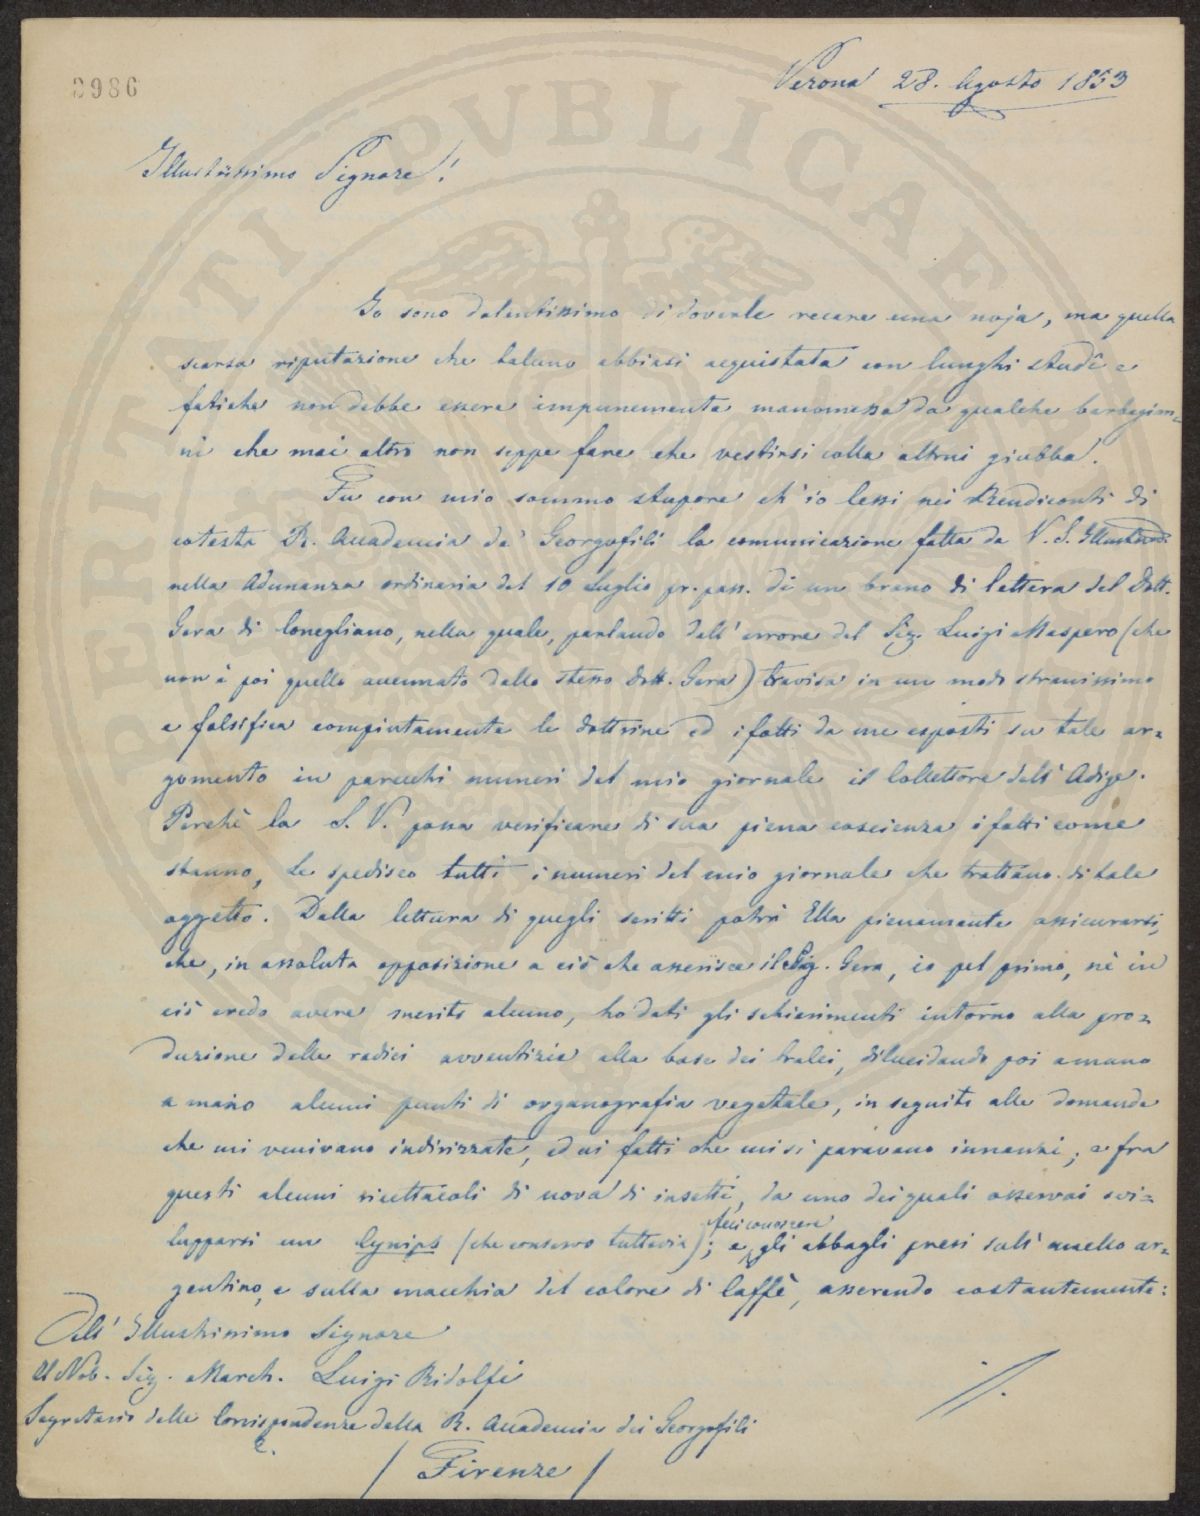 3986
Verona 28. Agosto 1853
Illustrissimo Signore!
Io sono dolentissimo di doverle recare una noja, ma quella
scarsa riputazione che taluno abbiasi acquistata con lunghi studî e
fatiche non debbe essere impunemente manomessa da qualche barbagian=
ni che mai altro non seppe fare che vestirsi colla altrui giubba.
Fu con mio sommo stupore ch'io lessi nei Rendiconti di
cotesta R. Accademia de' Georgofili la comunicazione fatta da V. S. Illustriss.
nella Adunanza ordinaria del 10 Luglio pr. pass. di un brano di lettera del Dott.
Gera di Conegliano, nella quale, parlando dell'errore del Sig. Luigi Maspero (che
non è poi quello accennato dallo stesso Dott. Gera) travisa in un modo stranissimo
e falsifica compiutamente le dottrine ed i fatti da me esposti su tale ar=
gomento in parecchi numeri del mio giornale il Collettore dell'Adige.
Perchè la S. V. possa verificare di sua piena coscienza i fatti come
stanno, Le spedisco tutti i numeri del mio giornale che trattano di tale
oggetto. Dalla lettura di quegli scritti potrà Ella pienamente assicurarsi,
che, in assoluta opposizione a ciò che asserisce il Sig. Gera, io pel primo, nè in
ciò credo avere merito alcuno, ho dati gli schiarimenti intorno alla pro=
duzione delle radici avventizie alla base dei tralci, dilucidando poi a mano
a mano alcuni punti di organografia vegetale, in seguito alle domande
che mi venivano indirizzate, ed ai fatti che mi si paravano innanzi; e fra
questi alcuni ricettacoli di uova di insetti, da uno dei quali osservai svi=
lupparsi un Cynips (che conservo tuttavia); e feci conoscere gli abbagli presi sull'anello ar=
gentino, e sulla macchia del colore di Caffè, asserendo costantemente:
All'Illustrissimo Signore
Il Nob. Sig. March. Luigi Ridolfi
Segretario delle Corrispondenze della R. Accademia dei Georgofili
/ Firenze /